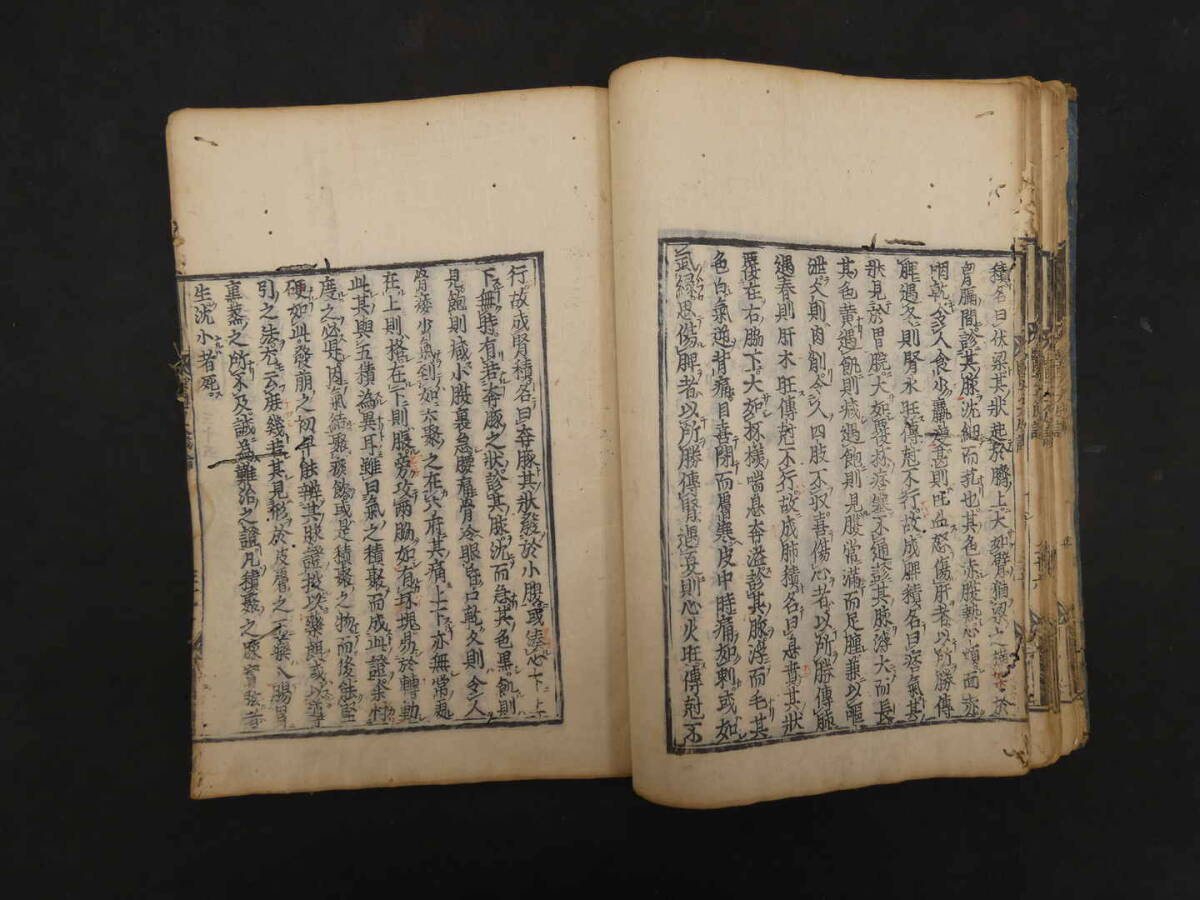 積名曰伏梁其狀起於臍上大如臂猶梁之橫架於
胃膈間診其脉沈細而芤也其色赤腹熱心煩面赤
咽乾令人食少羸甚則吐血怒傷肝者以所勝傳
脾遇冬則腎水旺傳尅不行故成脾積名曰痞氣其
狀見於胃脘大如覆杯痞塞不通診其脉浮大而長
其色黄遇飢則減遇飽則見腹常滿而足腫兼以嘔
泄久則肉削令人四肢不収喜傷心者以所勝傳肺
遇春則肝木旺傳尅不行故成肺積名曰息賁其狀
覆在右脇下大如杯樣喘息奔溢診其脉浮而毛其
色白氣逆背痛目喜閉而膚寒皮中時痛如刺或如
虱緣思傷脾者以所勝傳腎遇夏則心火旺傳尅不
行故成腎積名曰奔豚其狀發於小腹或湊心下上
下無時有若奔豚之狀診其脉沈而急其色黒飢則
見飽則減小腹裏急腰痛骨冷眼昏口乾久則令人
骨痿少氣到如六聚之在六府其痛上下亦無常處
在上則格在下則脹旁攻兩脇如有坏塊易於轉動
此其與五積為異耳雖曰氣之積聚而成此證
度之必是内氣結聚痰飲或是積聚之物而後能堅
硬如此發崩之初早能辨其脉證投以藥
引之法不云庶幾若其見形於皮膚之下藥入腸胃
熏蒸之所不及誠為難治之證凡積聚之脉實強者
生沈小者死